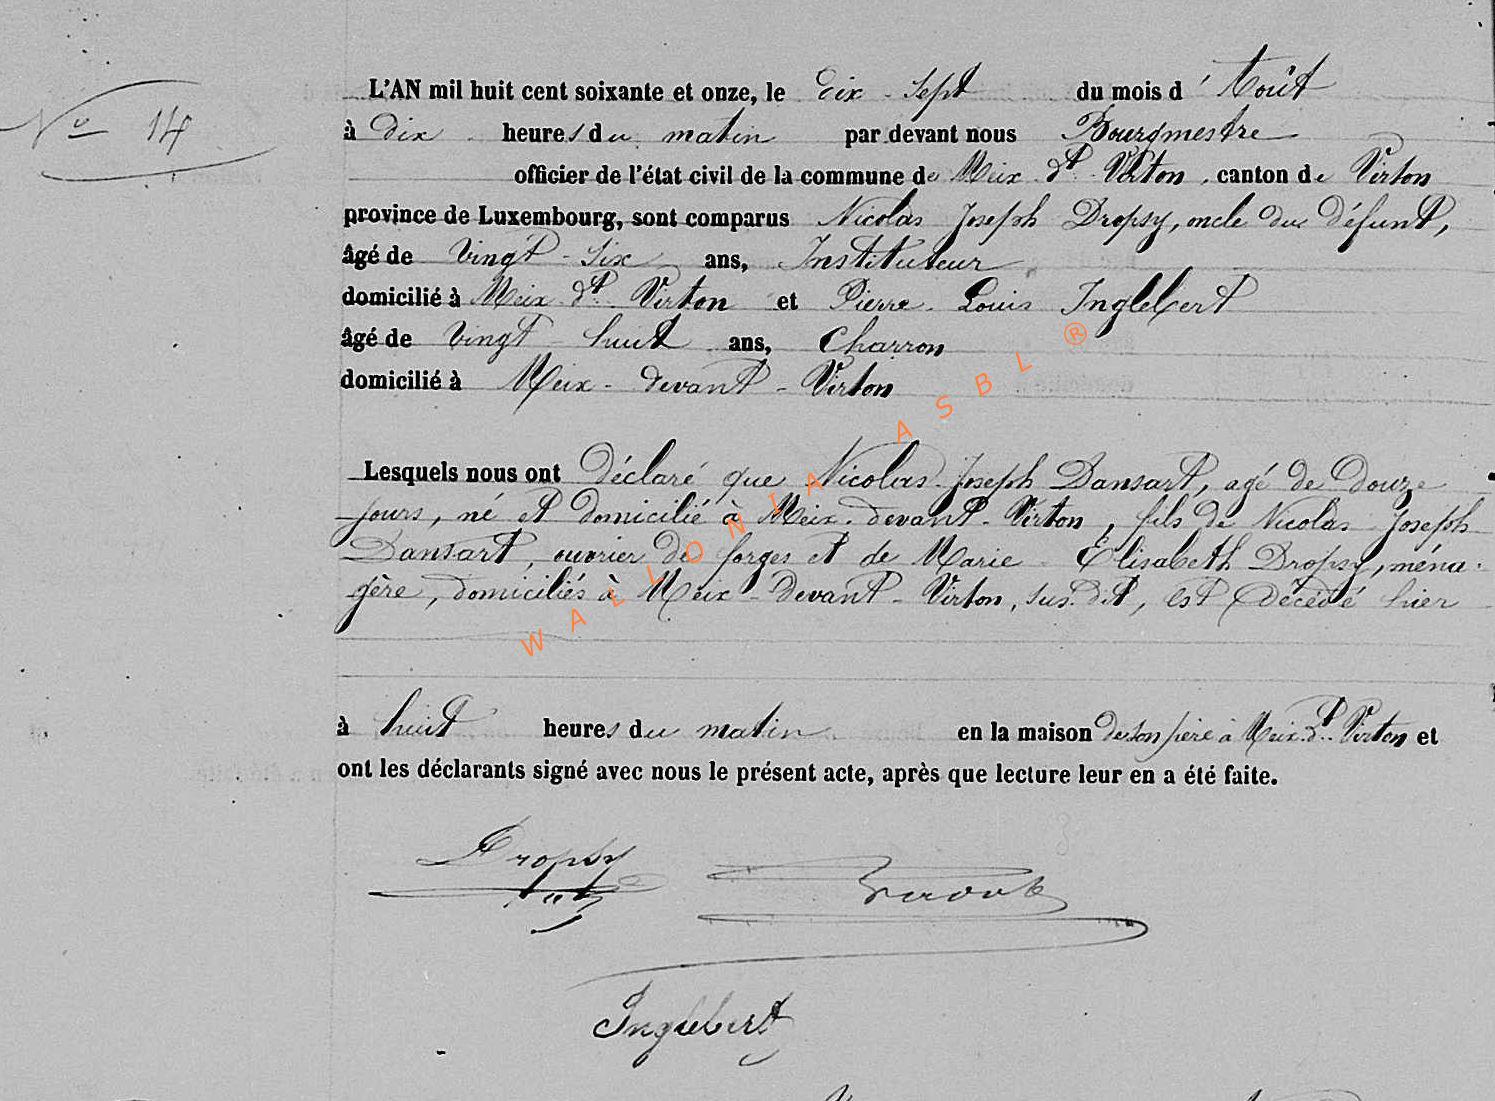 L'AN mil huit cent soixante et onze, le Dix-Sept du mois d'Août
N° 14
à Dix heures du matin par devant nous Bourgmestre
officier de l'état civil de la commune de Meix-dt-Virton, canton de Virton
province de Luxembourg, sont comparus Nicolas Joseph Dropsy, oncle du défunt,
âgé de Vingt-Six ans, Instituteur
domicilié à Meix-dt-Virton et Pierre-Louis Inglebert
âgé de Vingt-huit ans, Charron
domicilié à Meix-devant-Virton
Lesquels nous ont Déclaré que Nicolas-Joseph Dansart, agé de Douze
jours, né et domicilié à Meix-devant-Virton, fils de Nicolas Joseph
Dansart, ouvrier de forges et de Marie-Elisabeth Dropsy, ména-
gère, domiciliés à Meix-Devant-Virton, sus-dit, est Décédé hier
à huit heures du matin en la maison de son père à Meix-dt-Virton et
ont les déclarants signé avec nous le présent acte, après que lecture leur en a été faite.
Dropsy
Inglebert
WALLONIA ASBL ®